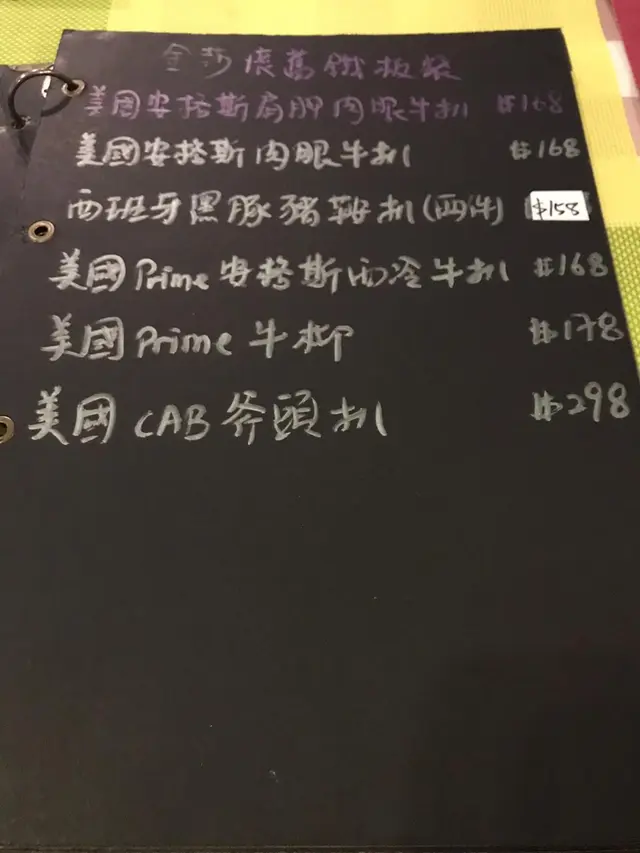 金莎懷舊鐵板餐
美國安格斯肩胛肉眼牛扒 $168
美國安格斯肉眼牛扒 $168
西班牙黑豚豬鞍扒(兩件) $158
美國Prime安格斯西冷牛扒 $168
美國Prime牛柳 $178
美國CAB斧頭扒 $298